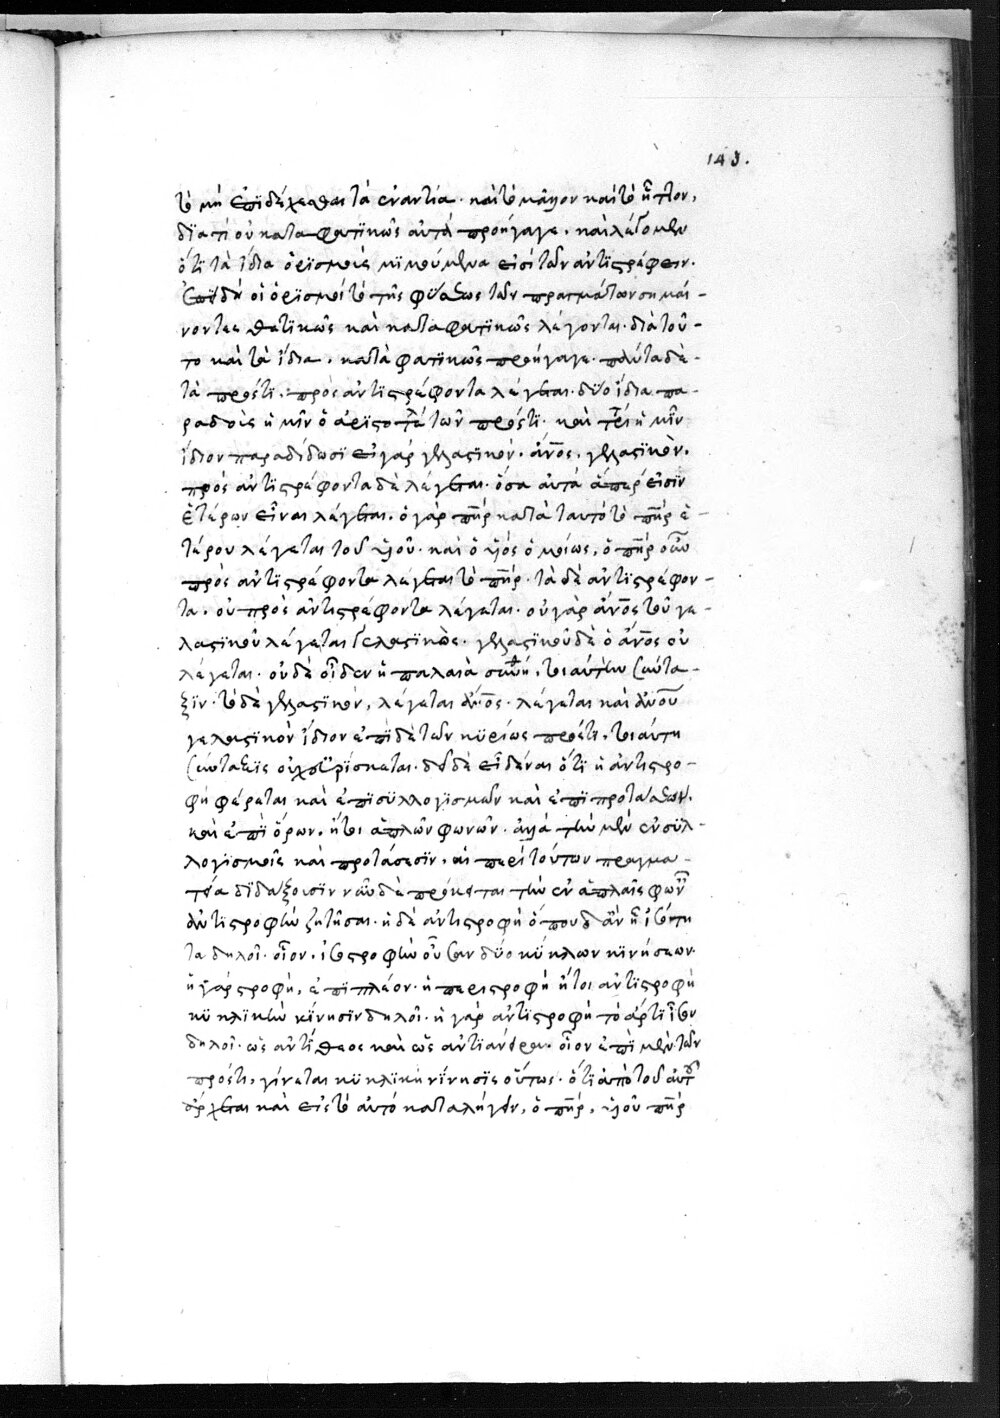 143.
τὸ μὴ ἐπιδέχεσθαι τὰ ἐναντία· καὶ τὸ μᾶλλον καὶ τὸ ἧττον,
διατί οὐ καταφατικῶς αὐτὰ προήγαγε, καὶ λέγομεν
ὅτι τὰ ἴδια ὁρισμοὺς μιμούμενα εἰσὶ τῶν ἀντιστρέφειν.
ἐπειδὴ οἱ ὁρισμοὶ τὸ τῆς φύσεως τῶν πραγμάτων σημαί-
νοντες θετικῶς καὶ καταφατικῶς λέγονται· διὰ τοῦ-
το καὶ τὰ ἴδια, καταφατικῶς προήγαγε· πάντα δὲ
τὰ πρός τι, πρὸς ἀντιστρέφοντα λέγεται· δύο ἴδια πα-
ραδοὺς ἡμῖν ὁ ἀριστοτέλης τῶν πρός τι· καὶ τρί ἡμῖν
ἴδιον παραδίδωσι εἰ γὰρ γελαστικόν, ἄνος, γελαστικόν.
πρὸς ἀντιστρέφοντα δὲ λέγεται· ὅσα αὐτὰ ἅπερ εἰσὶν
ἑτέρων εἶναι λέγεται, ὁ γὰρ πηρ κατὰ ταυτὸ τὸ πηρ ἑ-
τέρου λέγεται τοῦ υἱοῦ· καὶ ὁ υἱὸς ὁμοίως, ὁ πηρ οὖν
πρὸς ἀντιστρέφοντα λέγεται τὸ πηρ· τὰ δὲ ἀντιστρέφον-
τα, οὐ πρὸς ἀντιστρέφοντα λέγεται· οὐ γὰρ ἄνος τοῦ γε-
λαστικοῦ λέγεται γελαστικὸς· γελαστικοῦ δὲ ὁ ἄνος οὐ
λέγεται· οὐδὲ οἶδεν ἡ παλαιὰ τοιαύτην σύντα-
ξιν· τὸ δὲ γελαστικόν, λέγεται ἄνος· λέγεται καὶ ἀνου
γελαστικὸν ἴδιον ἐπὶ δὲ τῶν κυρίως πρός τι, τοιαύτη
σύνταξις οὐχ εὑρίσκεται· δεῖ δὲ εἰδέναι ὅτι ἡ ἀντιστρο-
φὴ φέρεται καὶ ἐπὶ συλλογισμῶν καὶ ἐπὶ προτάσεων,
καὶ ἐπὶ ὅρων, ἤτοι ἁπλῶν φωνῶν· ἀλλὰ τὴν μὲν ἐν συλ-
λογισμοῖς καὶ προτάσεσιν, αἱ περὶ τούτων πραγμα-
τεῖα διδάξουσιν νῦν δὲ πρόκειται τὴν ἐν ἁπλαῖς φων
ἀντιστροφὴν ζητῆσαι· ἡ δὲ ἀντιστροφὴ ὅπου δἂν ᾖ ἰσότη
τα δηλοῖ· οἷον, ἰσοστροφὴν οὖσαν δύο κύκλων κινήσεων·
ἡ γὰρ στροφὴ, ἐπιπλέον· ἡ περιστροφὴ ἤτοι ἀντιστροφὴ
κυκλικὴν κίνησιν δηλοῖ· ἡ γὰρ ἀντιστροφὴ τὸ ἀντὶ ἴσον
δηλοῖ· ὡς ἀντίθεος καὶ ὡς ἀντιάνειρα· οἷον ἐπὶ μὲν τῶν
πρός τι, γίνεται κυκλικὴ κίνησις οὕτως· ὅτι ἀπὸ τοῦ αὐτ
ἄρχεται καὶ εἰς τὸ αὐτὸ καταλήγει, ὁ πηρ, υἱοῦ πηρ